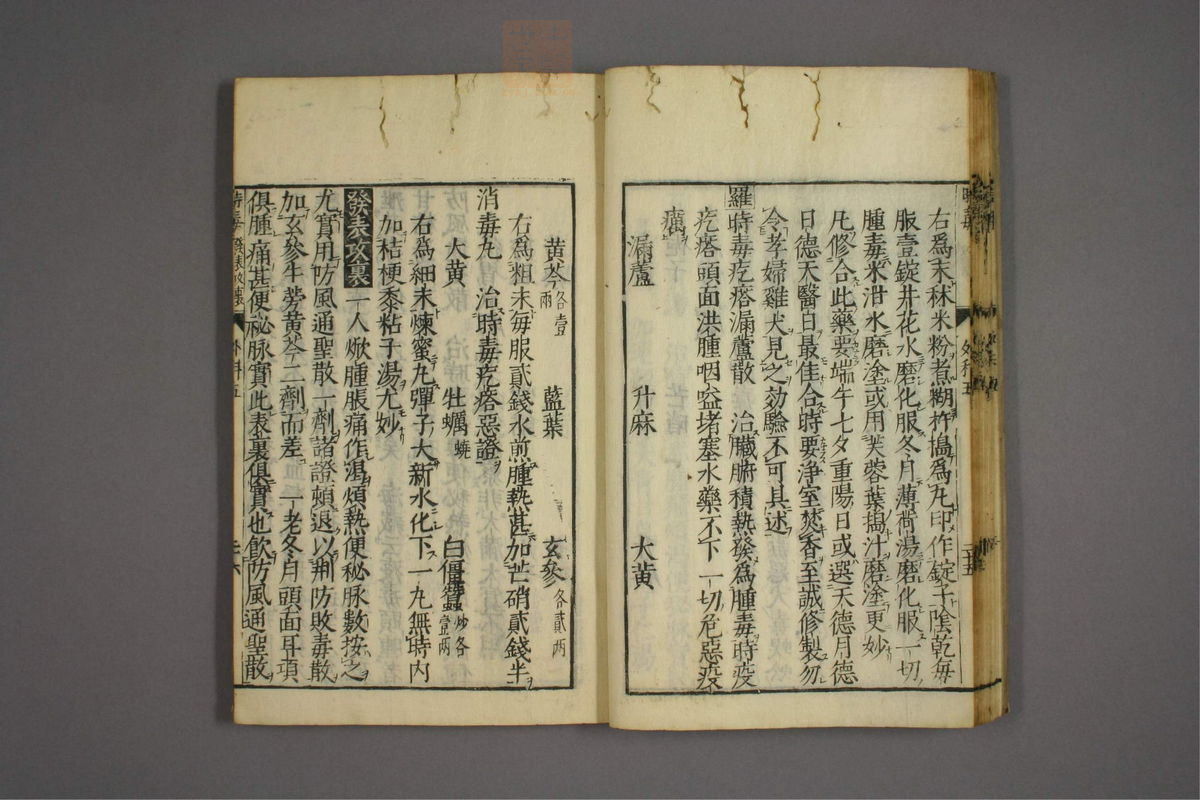 右爲末秫米粉煮糊杵搗爲丸印作錠子陰乾每
服壹錠井花水磨化服冬月薄荷湯磨化服一切
腫毒米泔水磨塗或用芙蓉葉搗汁磨塗更妙
凡修合此藥要端午七夕重陽日或選天德月德
日德天醫日最佳合時要淨室焚香至誠修製勿
令孝婦雞犬見之効驗不可具述
羅時毒疙瘩漏蘆散 治臟腑積熱發為腫毒時疫
疙瘩頭面洪腫咽嗌堵塞水藥不下一切危惡疫
癘
漏蘆 升麻 大黃
黃芩各壹兩 藍葉 玄參各貳兩
右為粗末每服貳錢水煎腫熱甚加芒硝貳錢半
消毒丸 治時毒疙瘩惡證
大黃 牡蠣燒 白僵蠶炒各壹兩
右為細末煉蜜丸彈子大新水化下一丸無時內
加桔梗黍粘子湯尤妙
發表攻裏 一人焮腫脹痛作渴煩熱便秘脉數按之
尤實用防風通聖散一劑諸證頓退以荊防敗毒散
加玄參牛蒡黃芩二劑而差 一老冬月頭面耳項
俱腫痛甚便秘脉實此表裏俱實也飲防風通聖散
時毒 發表攻裏 外科五